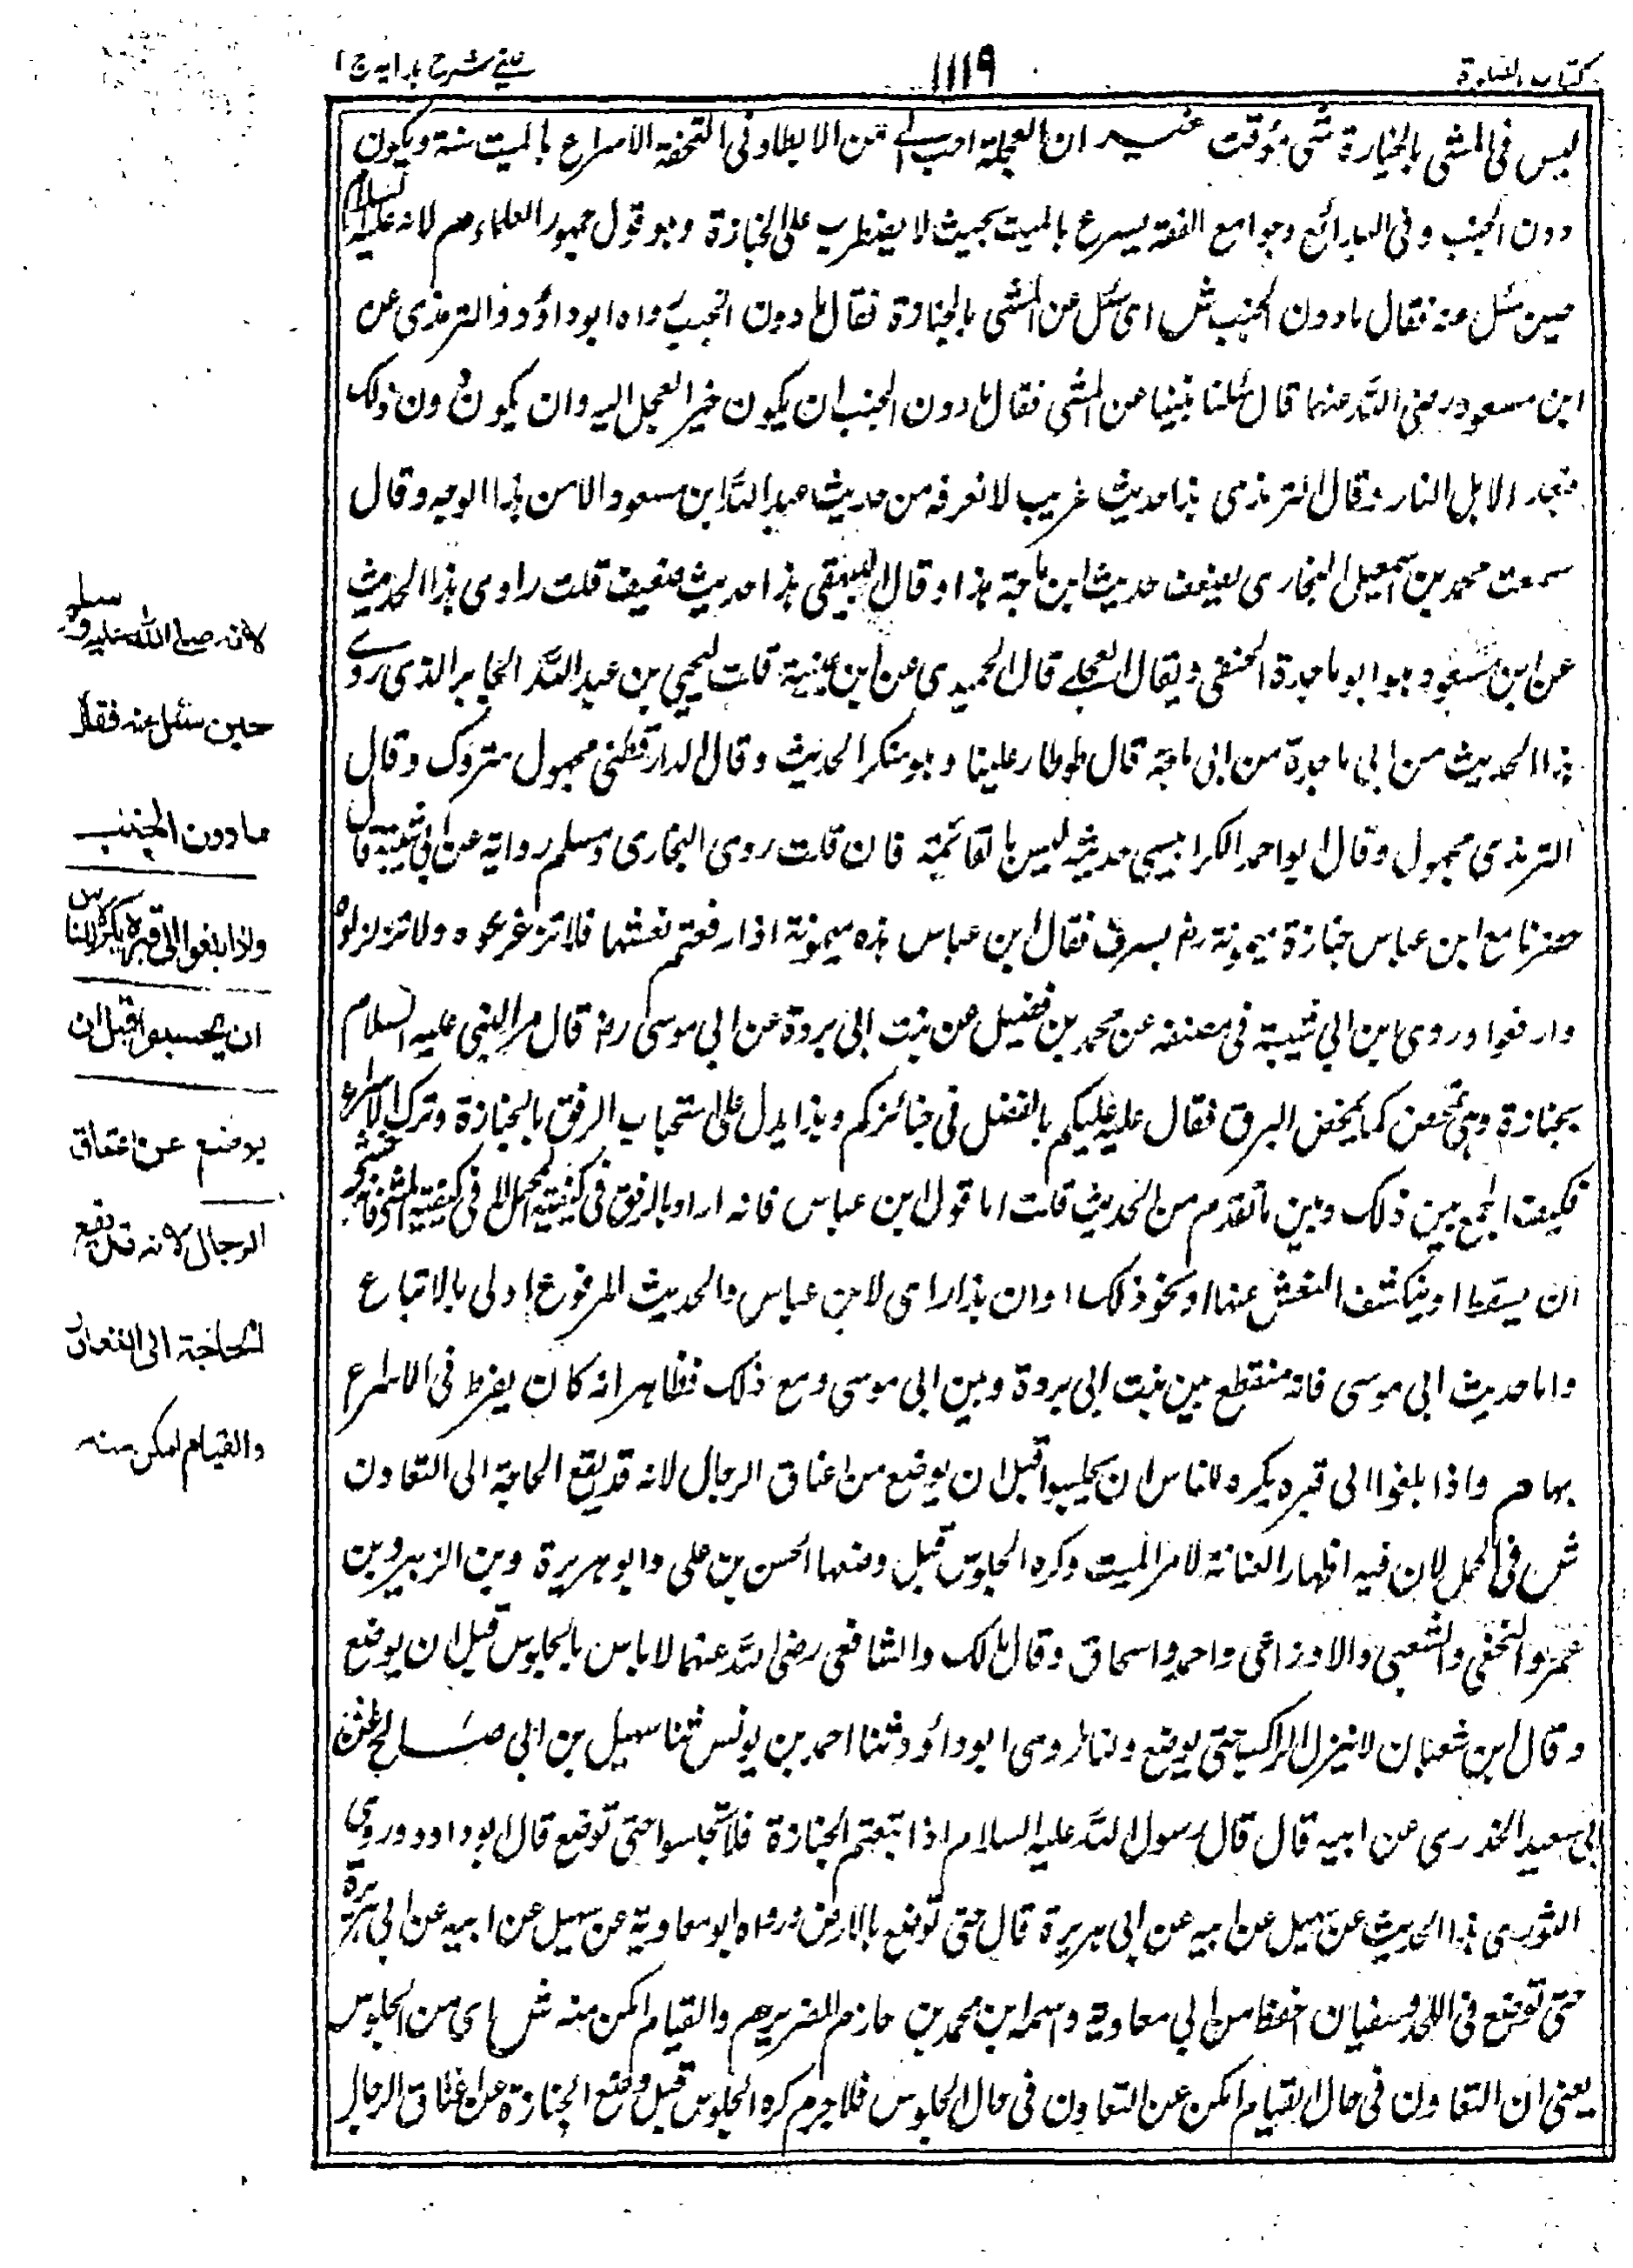 كتاب الصلوة
١١١٩
عينى شرح هدايه ج ١
ليس فى المشى بالجنازة شى موقت غير ان العجلة احب الى من الابطاء وفى التحفة الاسراع بالميت سنة ويكون
دون الخبب وفى البدائع وجوامع الفقه يسرع بالميت بحيث لا يضطرب على الجنازة وهو قول جمهور العلماء م لانه عليه السلام
حين سئل عنه فقال ما دون الخبب ش اى سئل عن المشى بالجنازة فقال ما دون الخبب رواه ابو داؤد والترمذى عن
ابن مسعود رضى الله عنهما قال سئلنا نبينا عن المشى فقال ما دون الخبب ان يكون خيرا لعجل اليه وان يكون دون ذلك
فبعد الابل النار وقال الترمذى هذا حديث غريب لا نعرفه من حديث عبد الله ابن مسعود الا من هذا الوجه وقال
سمعت محمد بن اسمعيل البخارى يضعف حديث ابن ماجة هذا وقال البيهقى هذا حديث ضعيف قلت راوى هذا الحديث
عن ابن مسعود هو ابو ماجدة الحنفى ويقال العجلے قال الحميدى عن ابن عيينة قلت ليحيى بن عبد الله الجابر الذى روے
هذا الحديث من ابى ماجدة من ابى ماجة قال طرطار علينا وهو منكر الحديث وقال الدارقطنى مجهول متروك وقال
الترمذى مجهول وقال ابو احمد الكرابيسى حديثه ليس بالقائمة فان قلت روى البخارى ومسلم رواية عن ابى شيبة قال
حضرنا مع ابن عباس جنازة ميمونة رض بسرف فقال ابن عباس هذه ميمونة اذا رفعتم نعشها فلا تزعزعوه ولا تزلزلوه
وارفعوا وروى ابن ابى شيبة فى مصنفه عن محمد بن فضيل عن بنت ابى بردة عن ابى موسى رض قال مر النبى عليه السلام
بجنازة وهى تمخض كما يمخض البرق فقال عليه عليكم بالفضل فى جنائزكم وهذا يدل على استحباب الرفق بالجنازة وترك الاسراع
فكيف الجمع بين ذلك وبين ما تقدم من الحديث قلت اما قول ابن عباس فانه اراد بالرفق فى كيفية الحمل لا فى كيفية المشى فانه خشى
ان يسقط او ينكشف النعش عنها او نحو ذلك او ان هذا راى لابن عباس والحديث المرفوع اولى بالاتباع
واما حديث ابى موسى فانه منقطع بين بنت ابى بردة وبين ابى موسى ومع ذلك فظاهر انه كان يفرط فى الاسراع
بها م واذا بلغوا الى قبره يكره للناس ان يجلسوا قبل ان يوضع من اعناق الرجال لانه قد يقع الحاجة الى التعاون
ش فى الحمل لان فيه اظهار العنانة لامر الميت وكره الجلوس قبل وضعها الحسن بن على وابو هريرة وبن الزبير وبن
عمر والنخعى والشعبى والاوزاعى واحمد واسحاق وقال مالك والشافعى رضى الله عنهما لا باس بالجلوس قبل ان يوضع
وقال ابن شعبان لا ينزل الراكب حتى يوضع ولنا ما روى ابو داؤد ثنا احمد بن يونس ثنا سهيل بن ابى صالح عن
ابى سعيد الخدرى عن ابيه قال قال رسول الله عليه السلام اذا تبعتم الجنازة فلا تجلسوا حتى توضع قال ابو داود وروى
الثورى هذا الحديث عن سهيل عن ابيه عن ابى هريرة قال حتى توضع بالارض ورواه ابو معاوية عن سهيل عن ابيه عن ابى هريرة
حتى توضع فى اللحد وسفيان احفظ من ابى معاوية واسمه ابن محمد بن حازم الضرير م والقيام امكن منه ش اى من الجلوس
يعنى ان التعاون فى حال القيام امكن عن التعاون فى حال الجلوس فلا جرم كره الجلوس قبل وضع الجنازة عن اعناق الرجال
لانه صلے الله عليه وسلم
حين سئل عنه فقال
ما دون الخبب
واذا بلغوا الى قبره يكره للناس
ان يجلسوا قبل ان
يوضع عن اعناق
الرجال لانه قد يقع
الحاجة الى التعاون
والقيام امكن منه